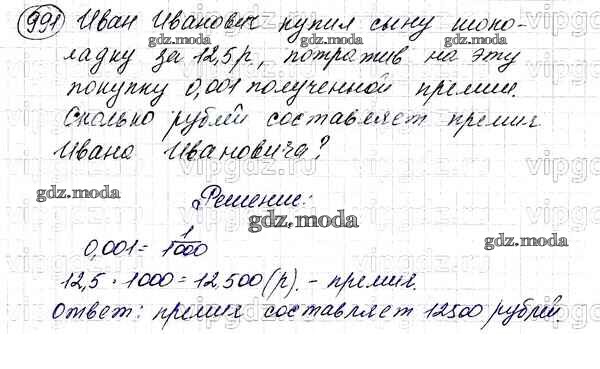 991 Иван Иванович купил сыну шоко-
ладку за 12,5 р, потратив на эту
покупку 0,001 полученной премии.
Сколько рублей составляет премия
Ивана Ивановича?
Решение:
0,001 = 1/1000
12,5 · 1000 = 12500 (р). - премия.
Ответ: премия составляет 12500 рублей.
gdz.moda
gdz.moda
gdz.moda
gdz.moda
gdz.moda
gdz.moda
gdz.moda
gdz.moda
vipgdz